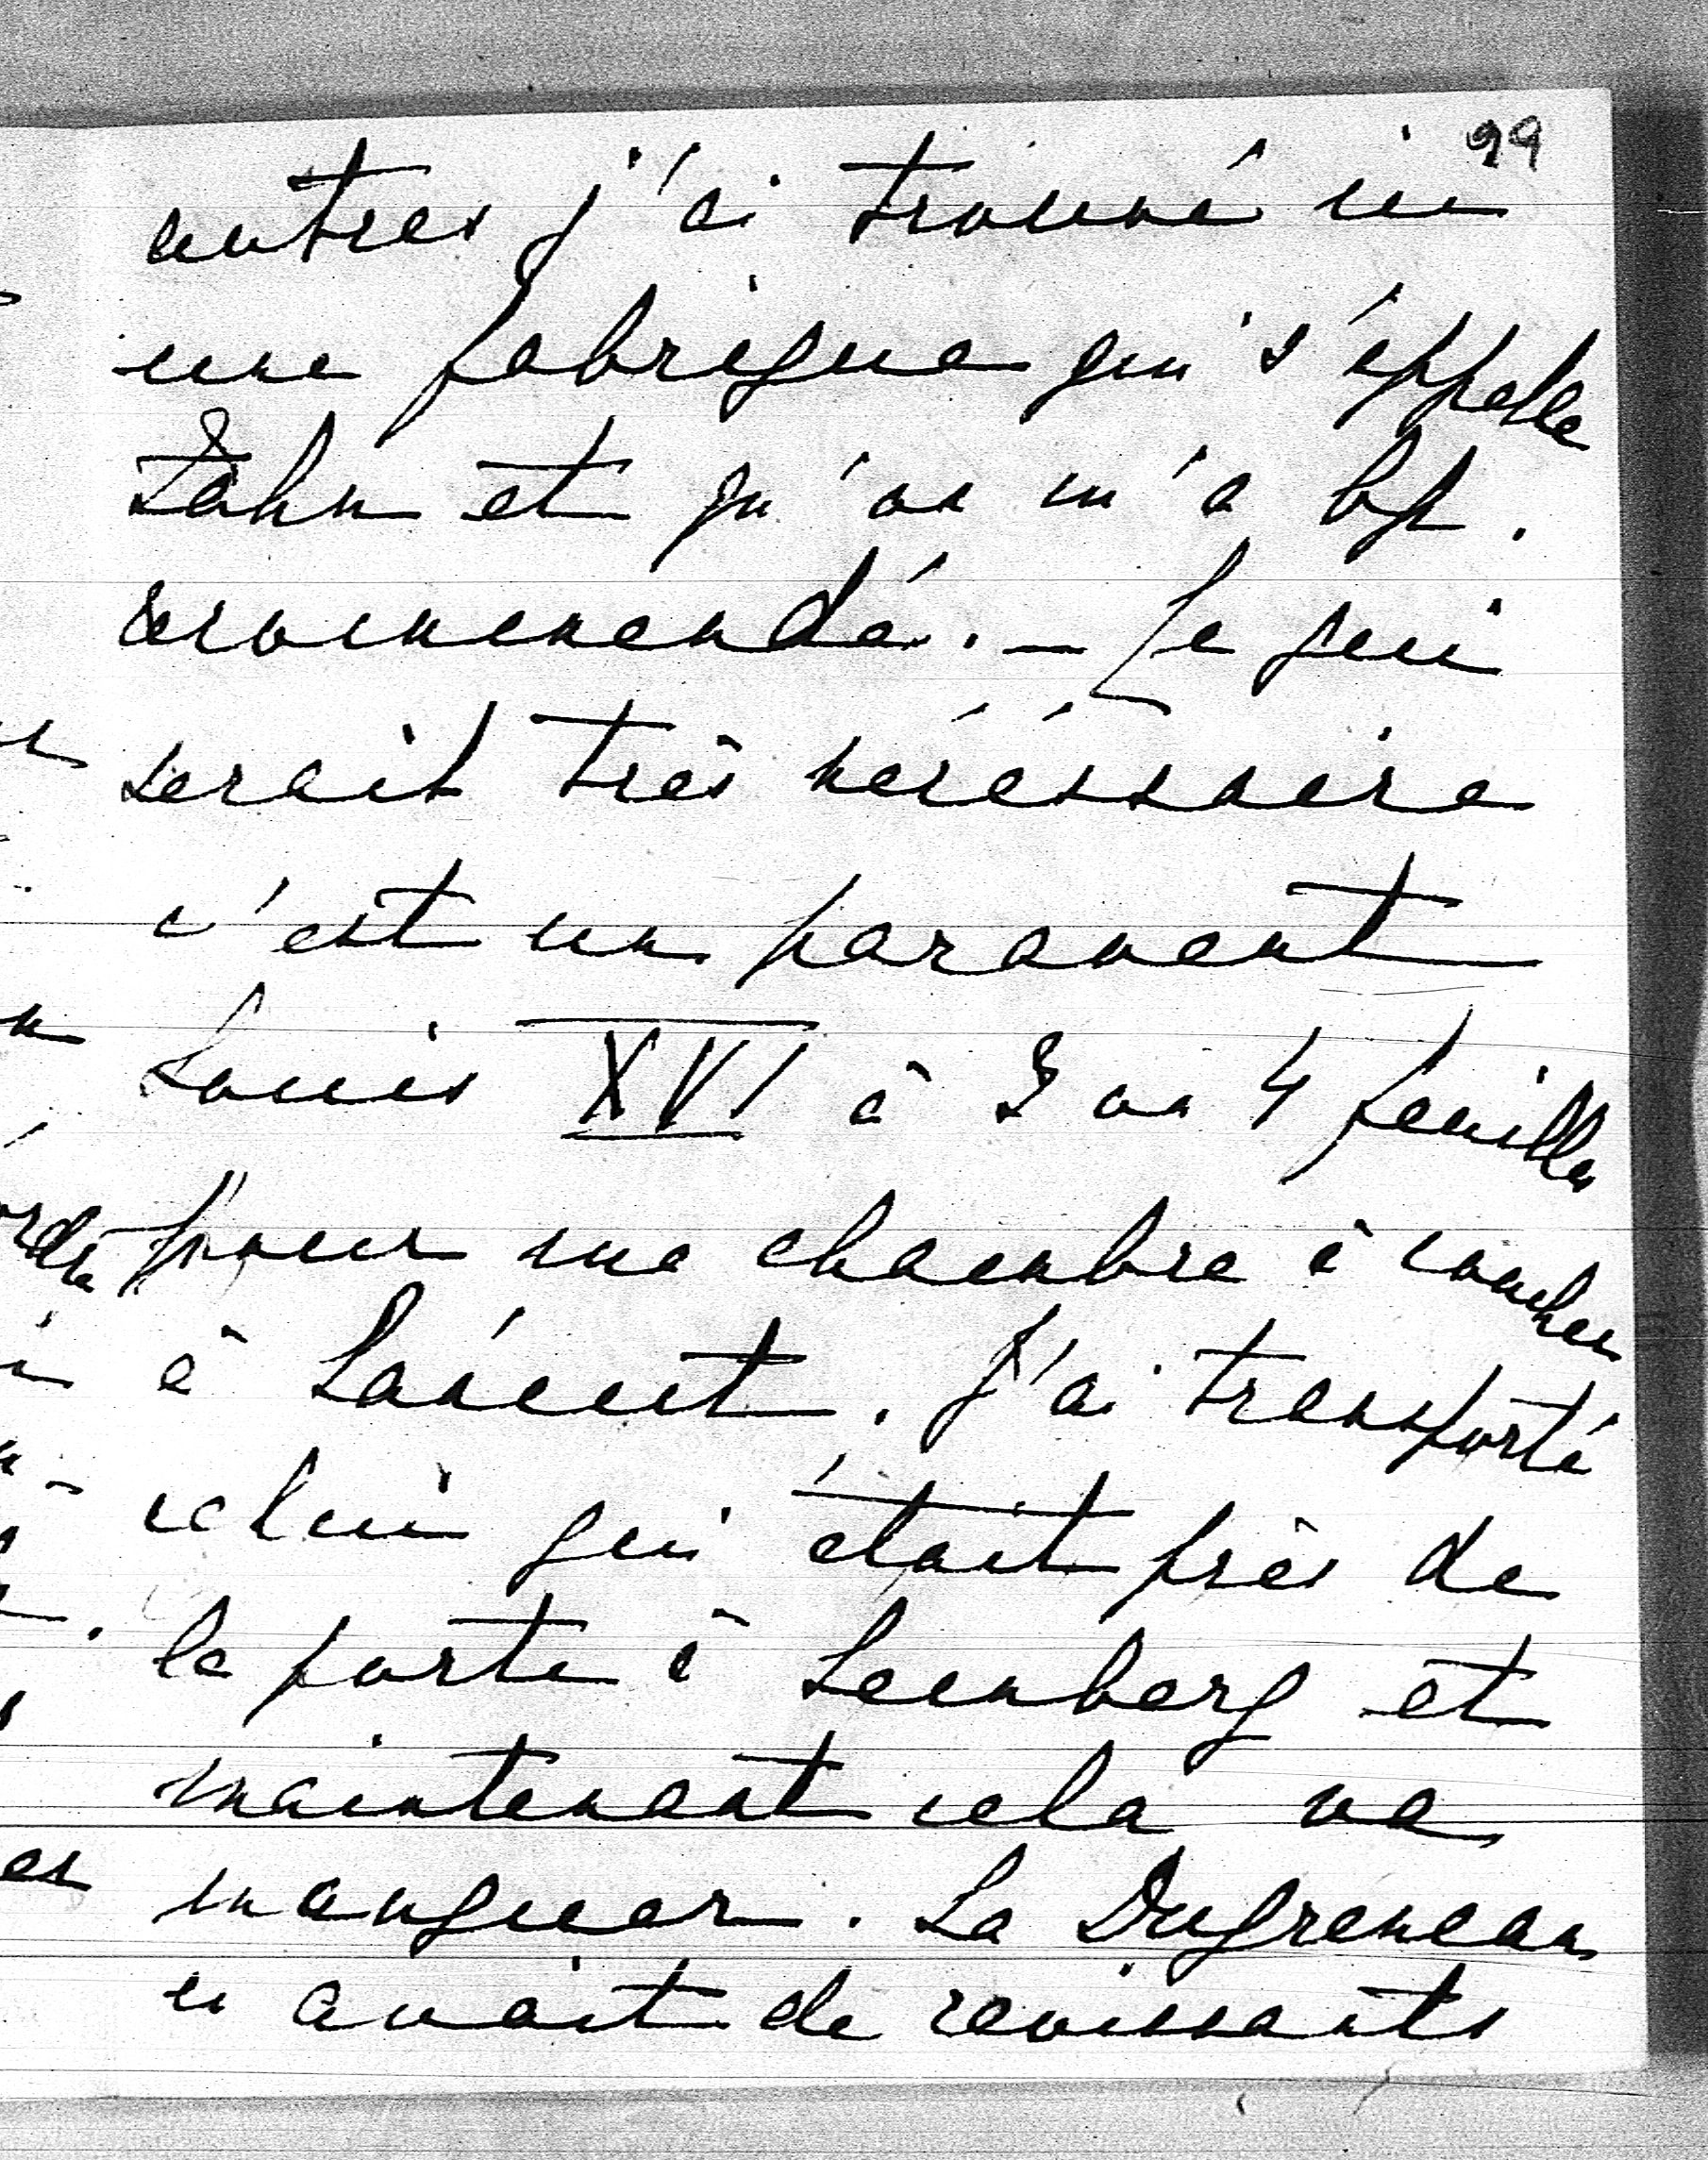 99
autres j'ai trouvé ici
une fabrique qui s'appelle
Zahn et qu'on m'a bp.
recommendé. — Ce qui
serait très nécéssaire
c'est un paravent
Louis XVI à 3 ou 4 feuilles
pour ma chambre à coucher
à Łańcut. J'ai transporté
celui qui était près de
la porte à Lemberg et
maintenant cela va
manquer. La Dugreneau
en avait de ravissants